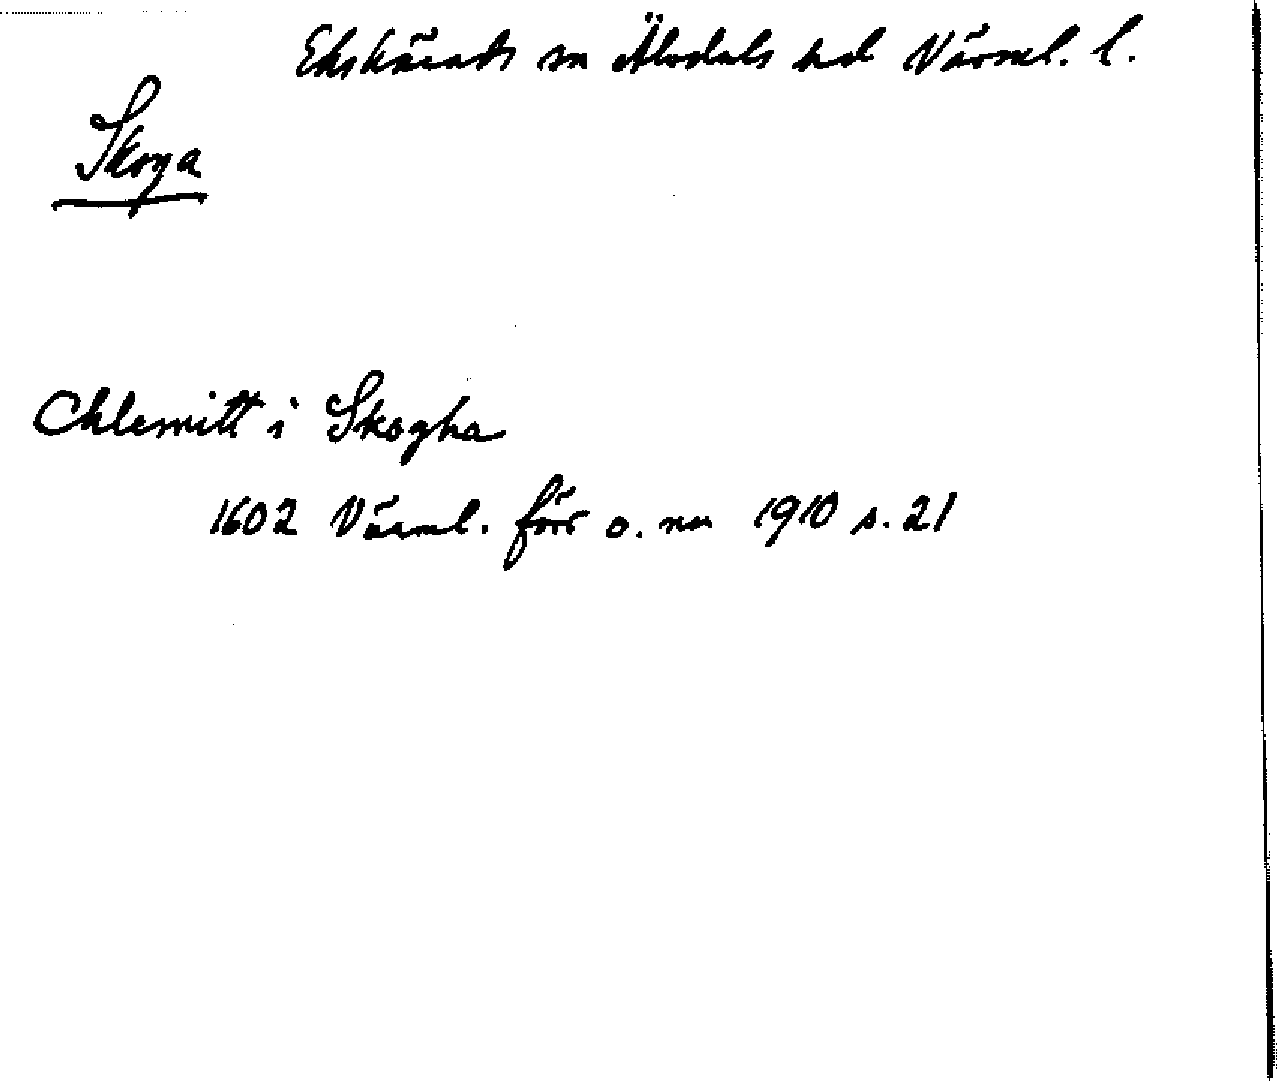 Ekshärads sn Älvdals hd Värml. l.
Skoga
Chlemitt i Skogha
1602 Värml. förr o. nu 1910 s. 21